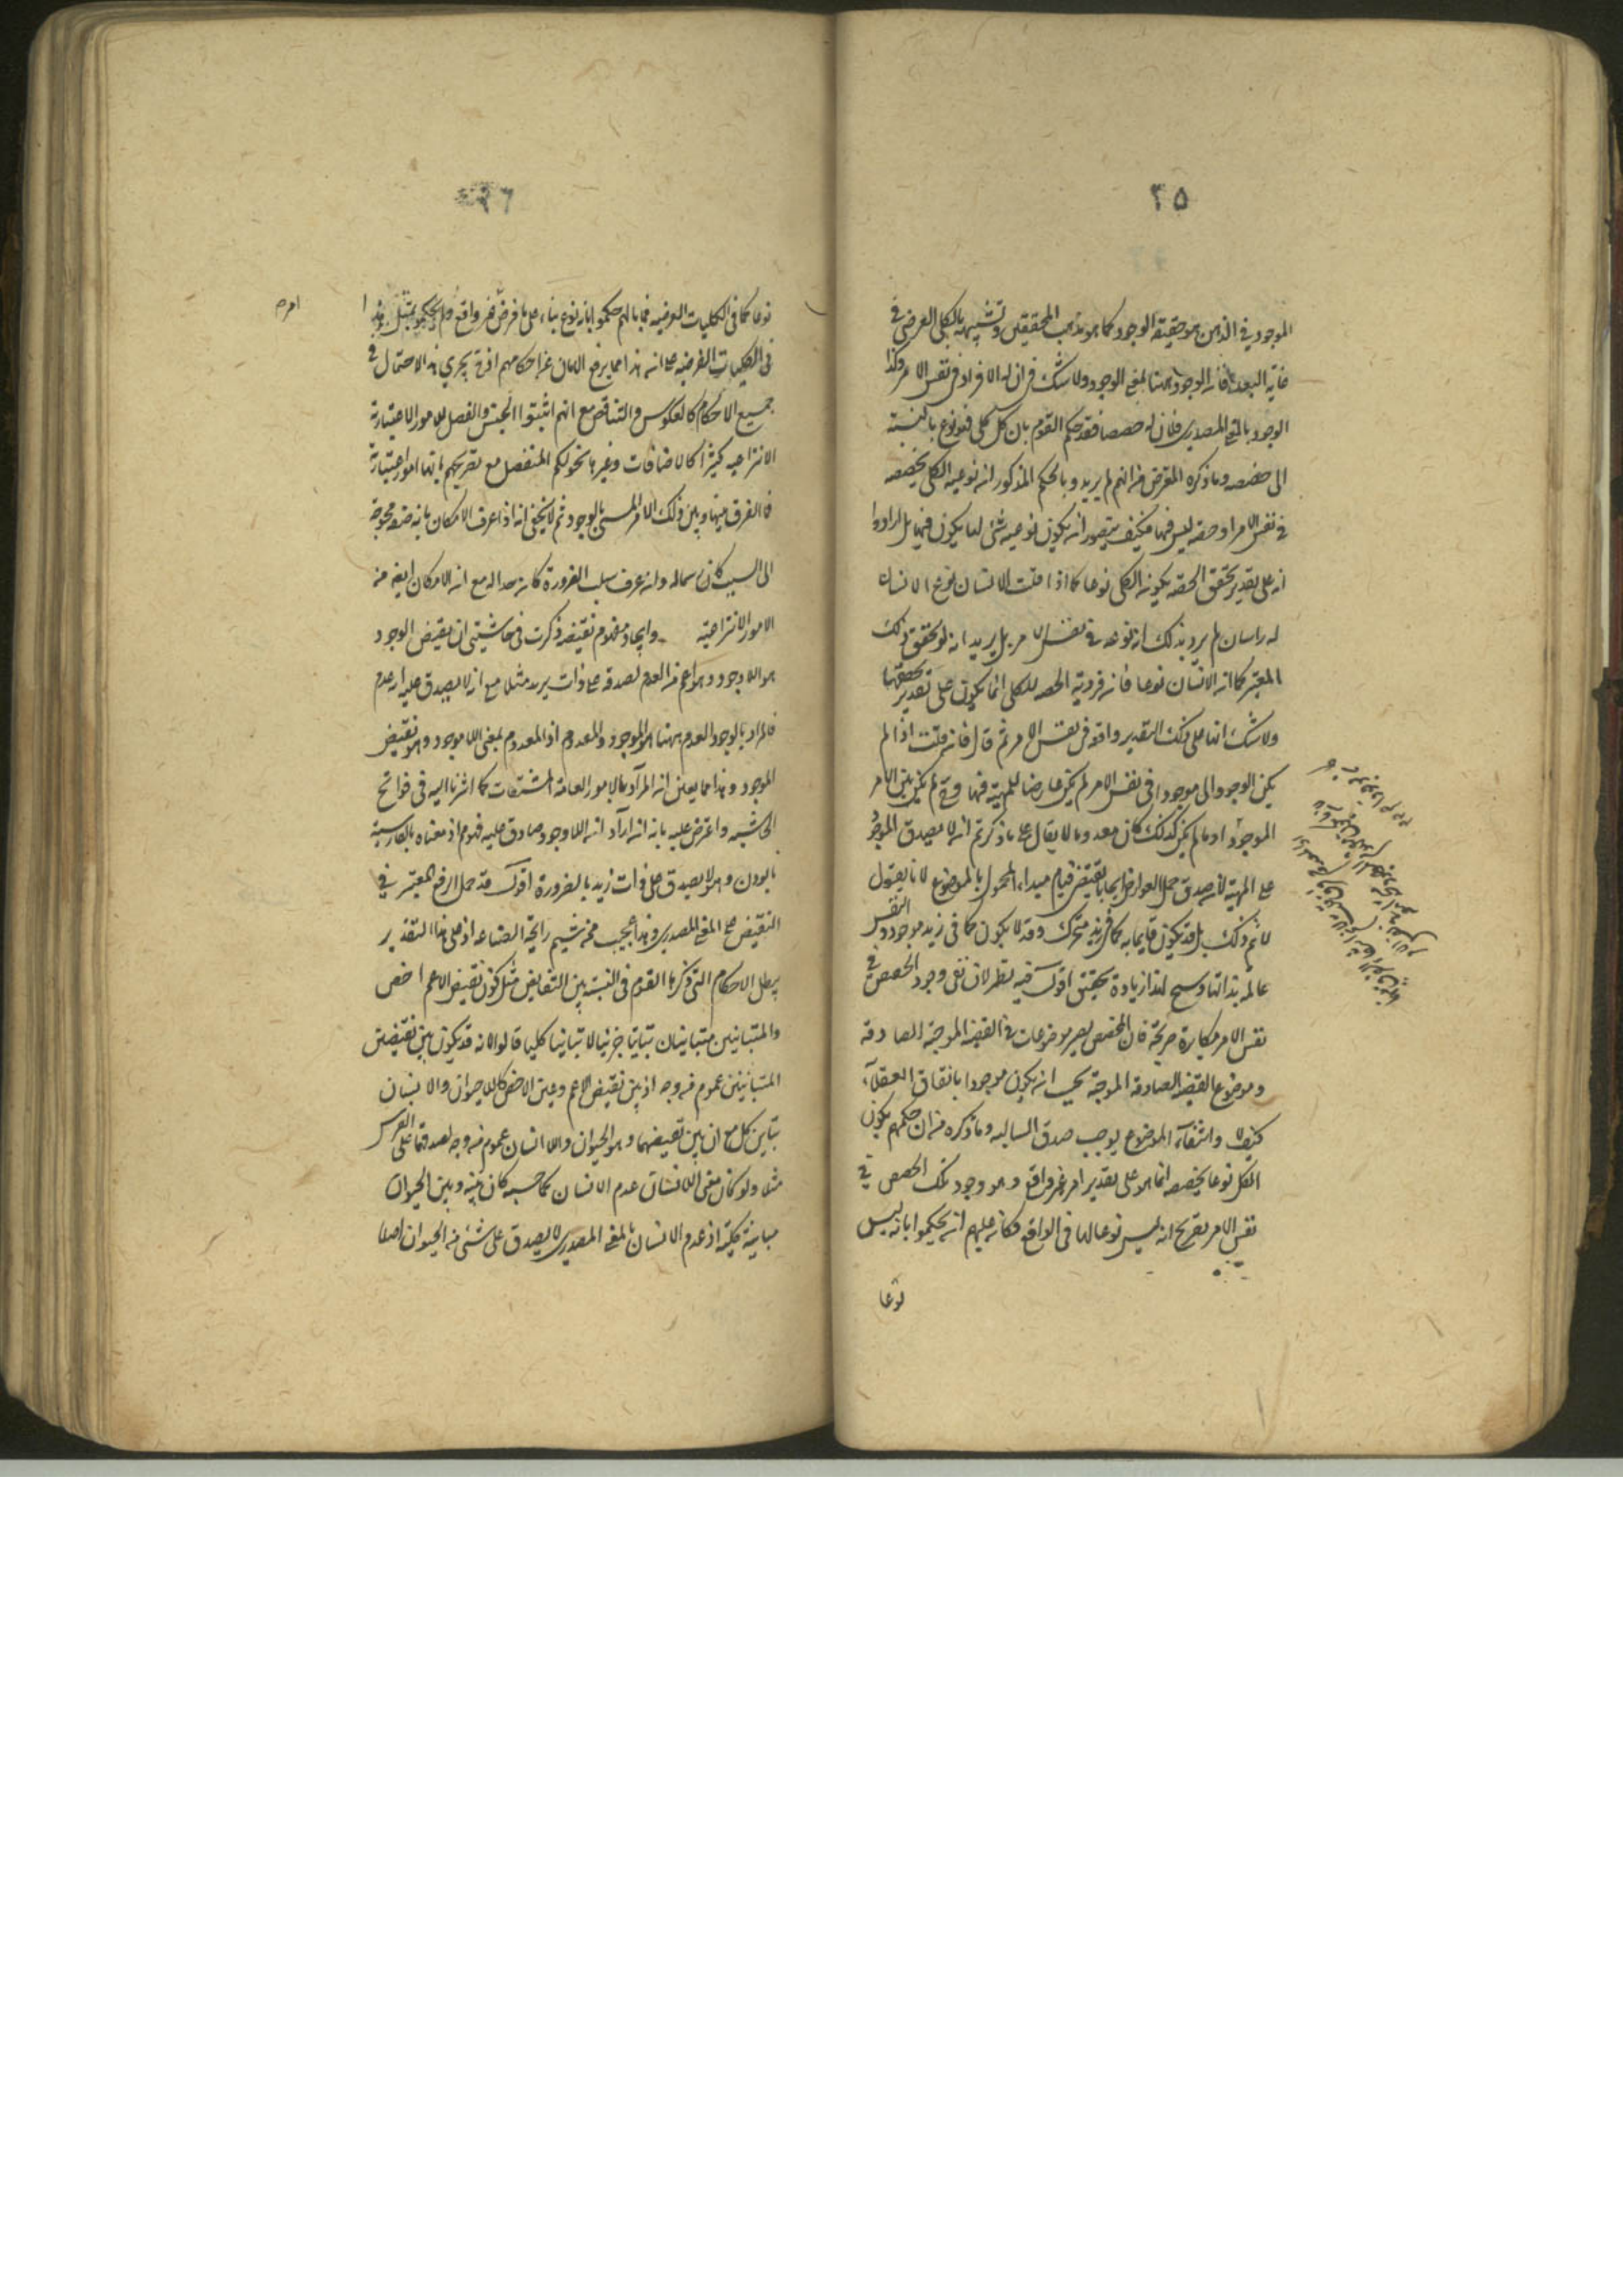 ٣٥
الموجود في الذهن هو حقيقة الوجود كما هو مذهب المحققين وتشبيهه بالكلي العرضي في
غاية البعد فان الوجود ههنا لمعنى الوجود ولا شك في ان له الافراد في نفس الامر وكذا
الوجود بالمعنى المصدري فلان له حصصا فقد حكم القوم بان كل كلي فهو نوع بالنسبة
الى حصصه وما ذكره المعترض من انهم لم يريدوا بالحكم المذكور انه نوعية الكلي لحصصه
في نفس الامر او حصته ليس فيها فكيف يتصور ان يكون نوعية شئ لما يكون فيها بل ارادوا
انه على تقدير تحقق الحصة يكون الكلي نوعا كما اذا قلت الانسان نوع الانسان
له راسان لم يرد بذلك انه نوعه في نفس الامر بل يريد انه لو تحقق ذلك
المعتبر كما انه الانسان نوعا فانه فردية الحصة للكلي انما يكون على تقدير تحققها
ولا شك انها على ذلك التقدير واقع في نفس الامر ثم قال فان قلت اذا لم
يكن الوجود الى موجودا في نفس الامر لم يكن عارضا للمهية فيها وح لم يكن بين الامر
الموجود او ما لم يكن كذلك كان معدوما لا يقال على ما ذكرتم انه لا يصدق الموجود
على المهية لان صدق حمل العوارض ايجابا يقتضي قيام مبداء المحمول بالموضوع لانا نقول
لا نم ذلك بل قد يكون قايما به كما في زيد متحرك وقد لا يكون كما في زيد موجود والنفس
عالمة بذاتها وسيجئ لهذا زيادة تحقيق اقول فيه نظر لان نفى وجود الحصص في
نفس الامر مكابرة صريحة فان الحصص يصير موضوعات في القضية الموجبة الصادقة
وموضوع القضية الصادقة الموجبة يجب ان يكون موجودا باتفاق العقلاء
كيف لا وانتفاء الموضوع يوجب صدق السالبه وما ذكره من ان حكمهم بكون
الكل نوعا لحصصه انما هو على تقدير امر غير واقع وهو وجود تلك الحصص في
نفس الامر تصريح انه ليس نوعا لها في الواقع فكان عليهم ان يحكموا بانه ليس
نوعا
٣٦
نوعا كما في الكليات الفرضية فما بالهم حكموا بانه نوع بناء على ما فرض غير واقع ولم يحكموا بمثل هذا
في الكليات الفرضيه على انه هذا مما يرفع الامان عن احكامهم اذ ح يجري هذا الاحتمال في
جميع الاحكام كالعكوس والتناقض مع انهم اثبتوا الجنس والفصل للامور الاعتبارية
الانتزاعيه كثيرا كالاضافات وغيرها نحو الكم المنفصل مع تصريحهم بانها امور اعتبارية
فما الفرق بينها وبين ذلك الامر المسمى بالوجود ثم لا يخفى انه اذا عرف الامكان بانه صفة محوجة
الى السبب كان رسما له وان عرف سلب الضرورة كان حدا له مع ان الامكان ايضا من
الامور الانتزاعية وايجاد مفهوم نقيضه ذكرت في حاشيتي ان نقيض الوجود
هو اللاوجود وهو اعم من العدم لصدقه على ذات زيد مثلا مع انه لا يصدق عليه انه عدم
فالمراد بالوجود والعدم ههنا هو الموجود والمعدوم اذ المعدوم بمعنى اللاموجود وهو نقيض
الموجود وهذا مما يعين انه المراد بالامور العامة المشتقات كما اشرنا اليه في فواتح
الحاشيه واعترض عليه بانه ان اراد انه اللاوجود صادق عليه فهو م اذ معناه بالفارسية
نابودن وهو لا يصدق على ذات زيد بالضرورة اقول قد حمل الرفع المعتبر في
النقيض على المعنى المصدري وهذا عجيب ممن شيم رايحة الصناعه اذ على هذا التقدير
يبطل الاحكام التي ذكرها القوم في النسبة بين النقايض مثل كون نقيض الاعم اخص
والمتباينين متباينان تباينا جزئيا لا تباينا كليا قالوا لانه قد يكون بين نقيضي
المتباينين عموم من وجه اذ بين نقيض الاعم وعين الاخص كاللاحيوان والانسان
تباين كل مع ان بين نقيضهما وهو الحيوان واللا انسان عموم من وجه لصدقهما على الفرس
مثلا ولو كان معنى اللا انسان عدم الانسان كما حسبه كان بينه وبين الحيوان
مباينة كلية اذ عدم الانسان بالمعنى المصدري لا يصدق على شئ من الحيوان اصلا